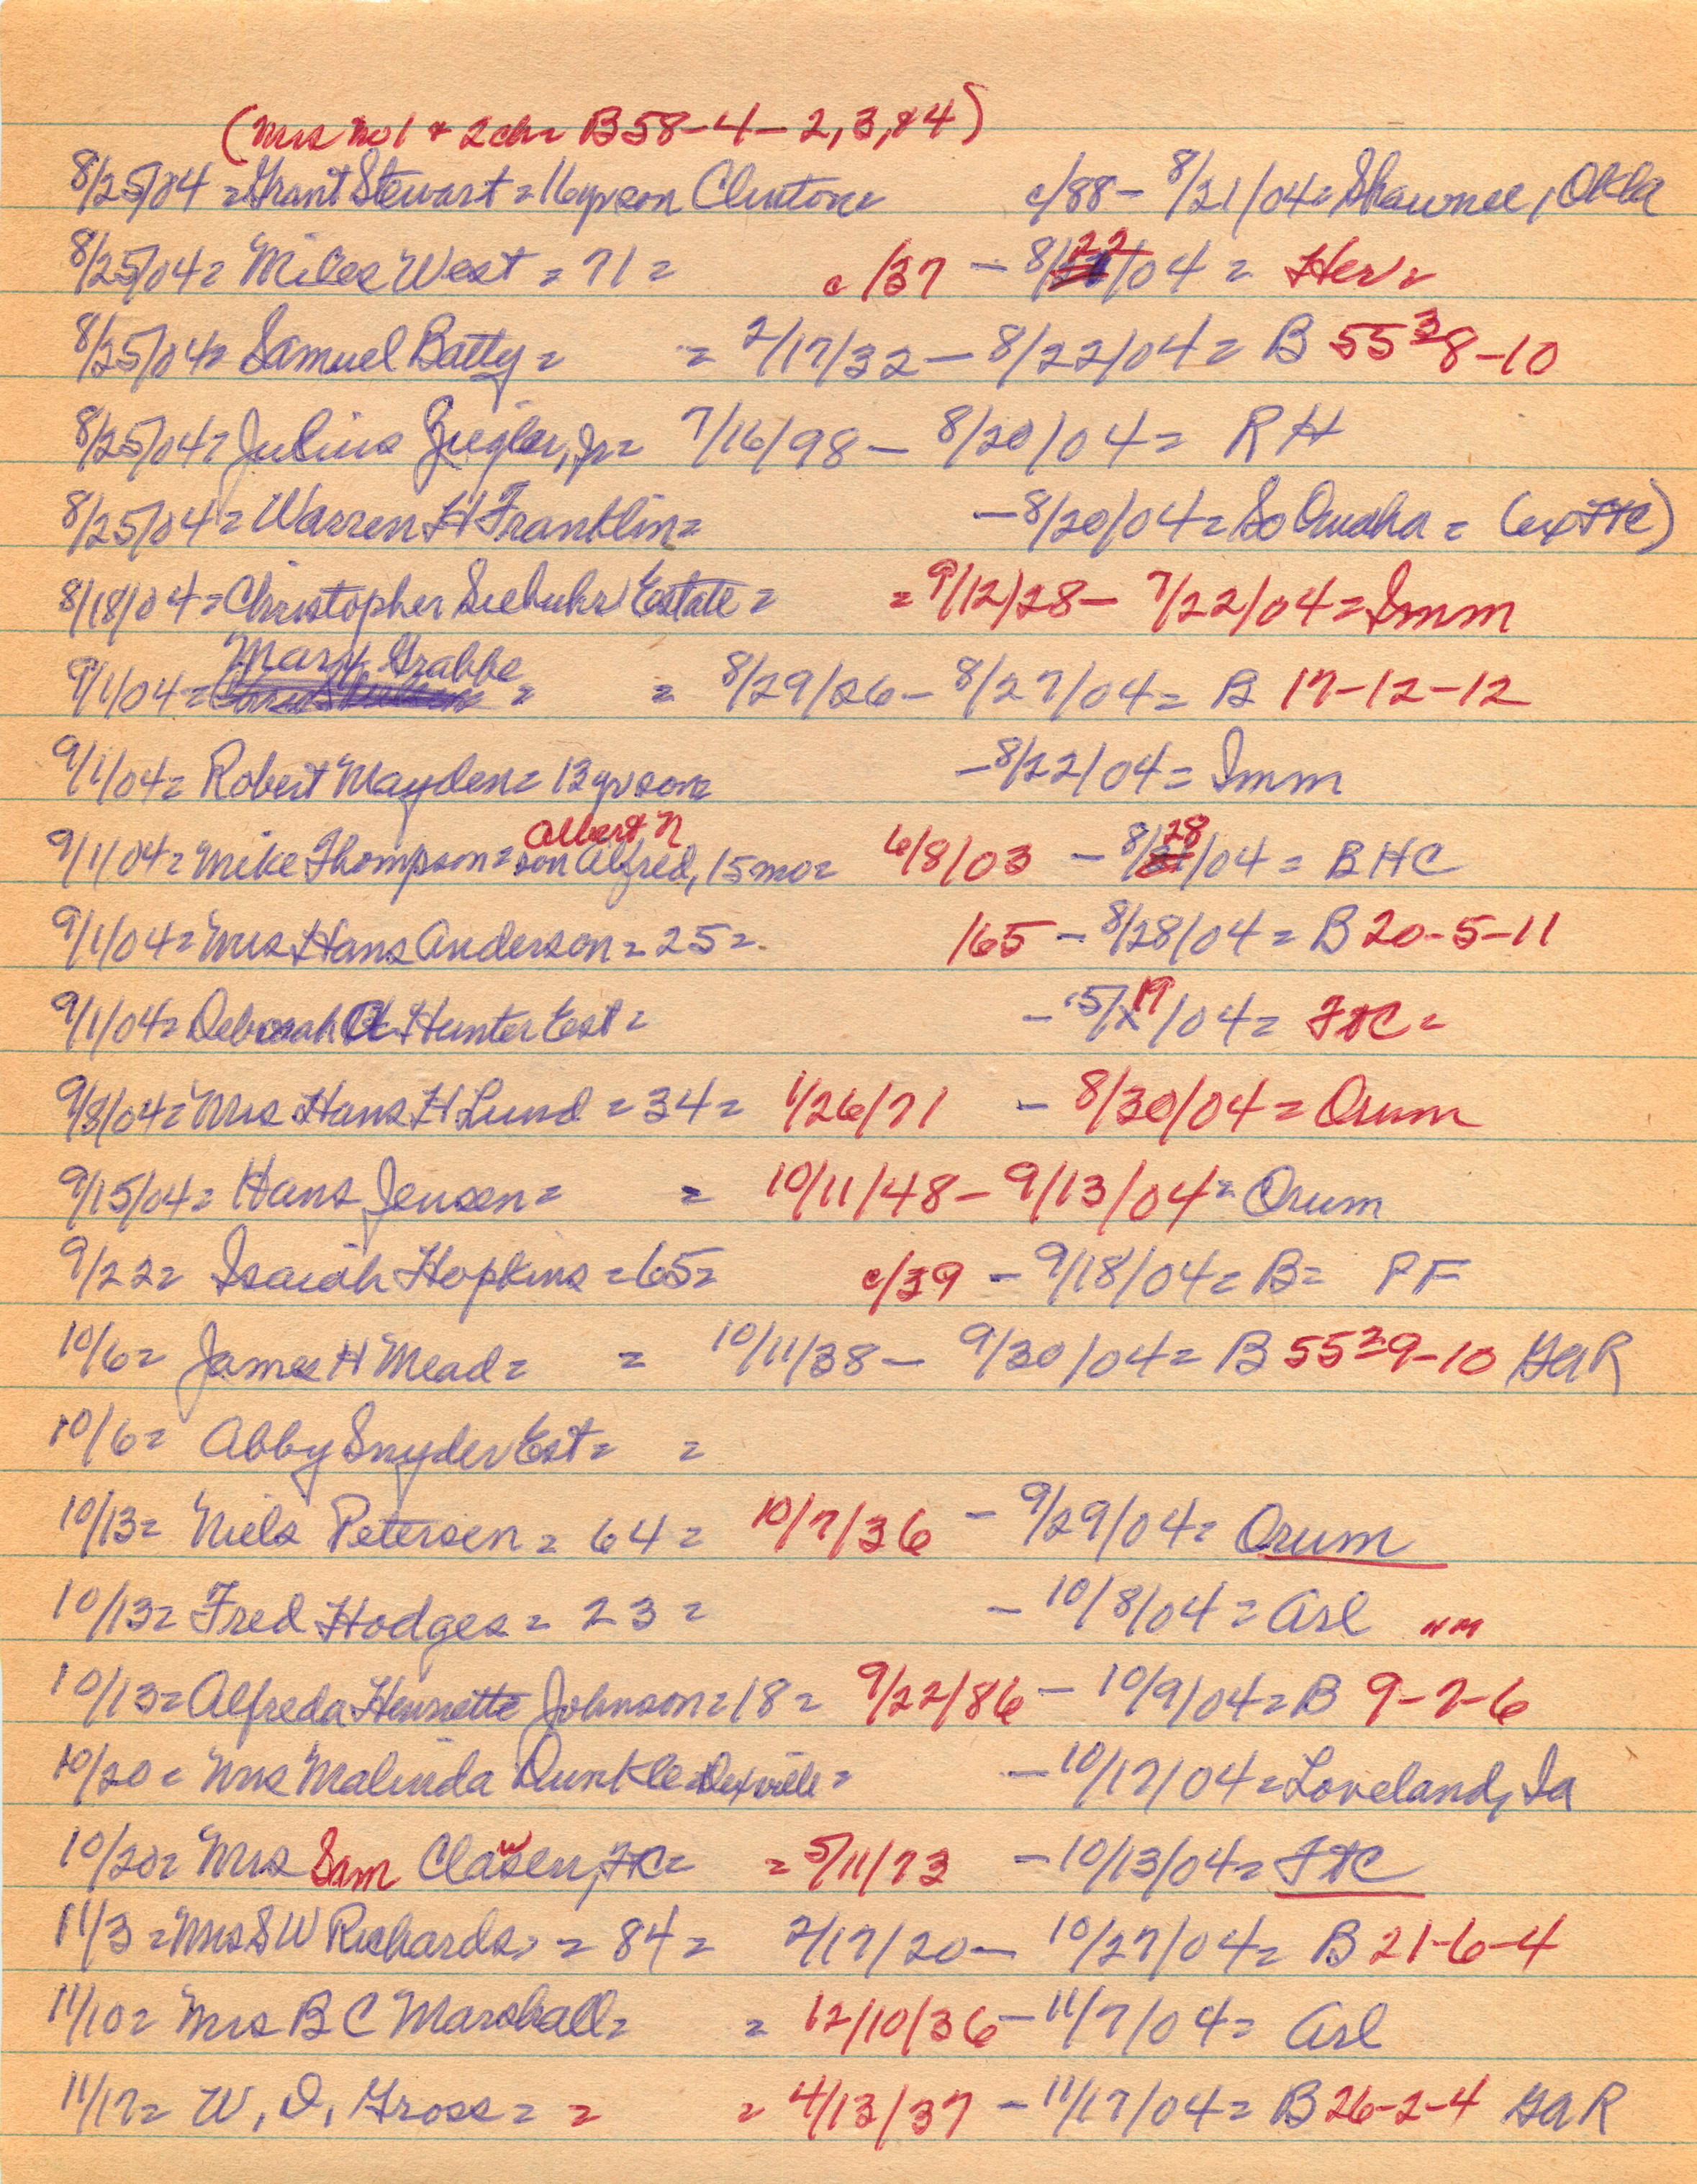 (Mrs No 1 & 2 ch = B 58-4-2,3,&4)
8/25/04 = Grant Stewart = 16 yr son Clinton = c/88 - 8/21/04 = Shawnee, Okla
8/25/04 = Miles West = 71 = c/37 - 8/22/04 = Her =
8/25/04 = Samuel Batty = = 2/17/32 - 8/22/04 = B 55 3 8-10
8/25/04 = Julius Ziegler, Jr = 7/16/98 - 8/20/04 = RH
8/25/04 = Warren H Franklin = - 8/20/04 = So Omaha = (ex FtC)
8/18/04 = Christopher Siebuhr Estate = = 9/12/28 - 7/22/04 = Imm
9/1/04 = Mary Grabbe = = 8/29/26 - 8/27/04 = B 17-12-12
9/1/04 = Robert Mayden = 13 yr son = - 8/22/04 = Imm
Albert N
9/1/04 = Mike Thompson = son Alfred, 15 mo = 6/8/03 - 8/28/04 = BHC
9/1/04 = Mrs Hans Anderson = 25 = 165 - 8/28/04 = B 20-5-11
9/1/04 = Deborah A Hunter Est = - 5/19/04 = FtC =
9/8/04 = Mrs Hans H Lund = 34 = 1/26/71 - 8/30/04 = Orum
9/15/04 = Hans Jensen = = 10/11/48 - 9/13/04 = Orum
9/22 = Isaiah Hopkins = 65 = c/39 - 9/18/04 = B = PF
10/6 = James H Mead = = 10/11/38 - 9/30/04 = B 55 2 9-10 GAR
10/6 = Abby Snyder Est = =
10/13 = Niels Petersen = 64 = 10/7/36 - 9/29/04 = Orum
10/13 = Fred Hodges = 23 = - 10/8/04 = Arl NM
10/13 = Alfreda Henriette Johnson = 18 = 9/22/86 - 10/9/04 = B 9-7-6
10/20 = Mrs Malinda Dunkle = - 10/17/04 = Loveland, Ia
10/20 = Mrs Sam Clawsen, FtC = = 5/11/73 - 10/13/04 = FtC
11/3 = Mrs S W Richards, = 84 = 2/17/20 - 10/27/04 = B 21-6-4
11/10 = Mrs B C Marshall = = 12/10/36 - 11/7/04 = Arl
11/17 = W. D. Gross = = = 4/13/37 - 11/17/04 = B 26-2-4 GAR